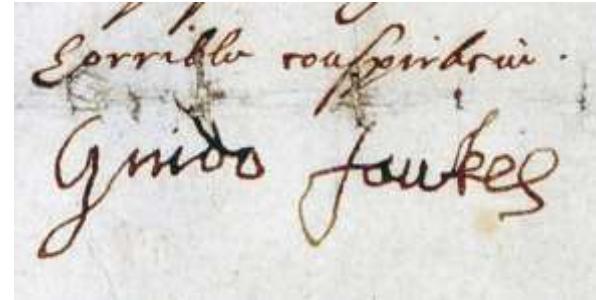 horrible conspiracie.
Guido fawkes